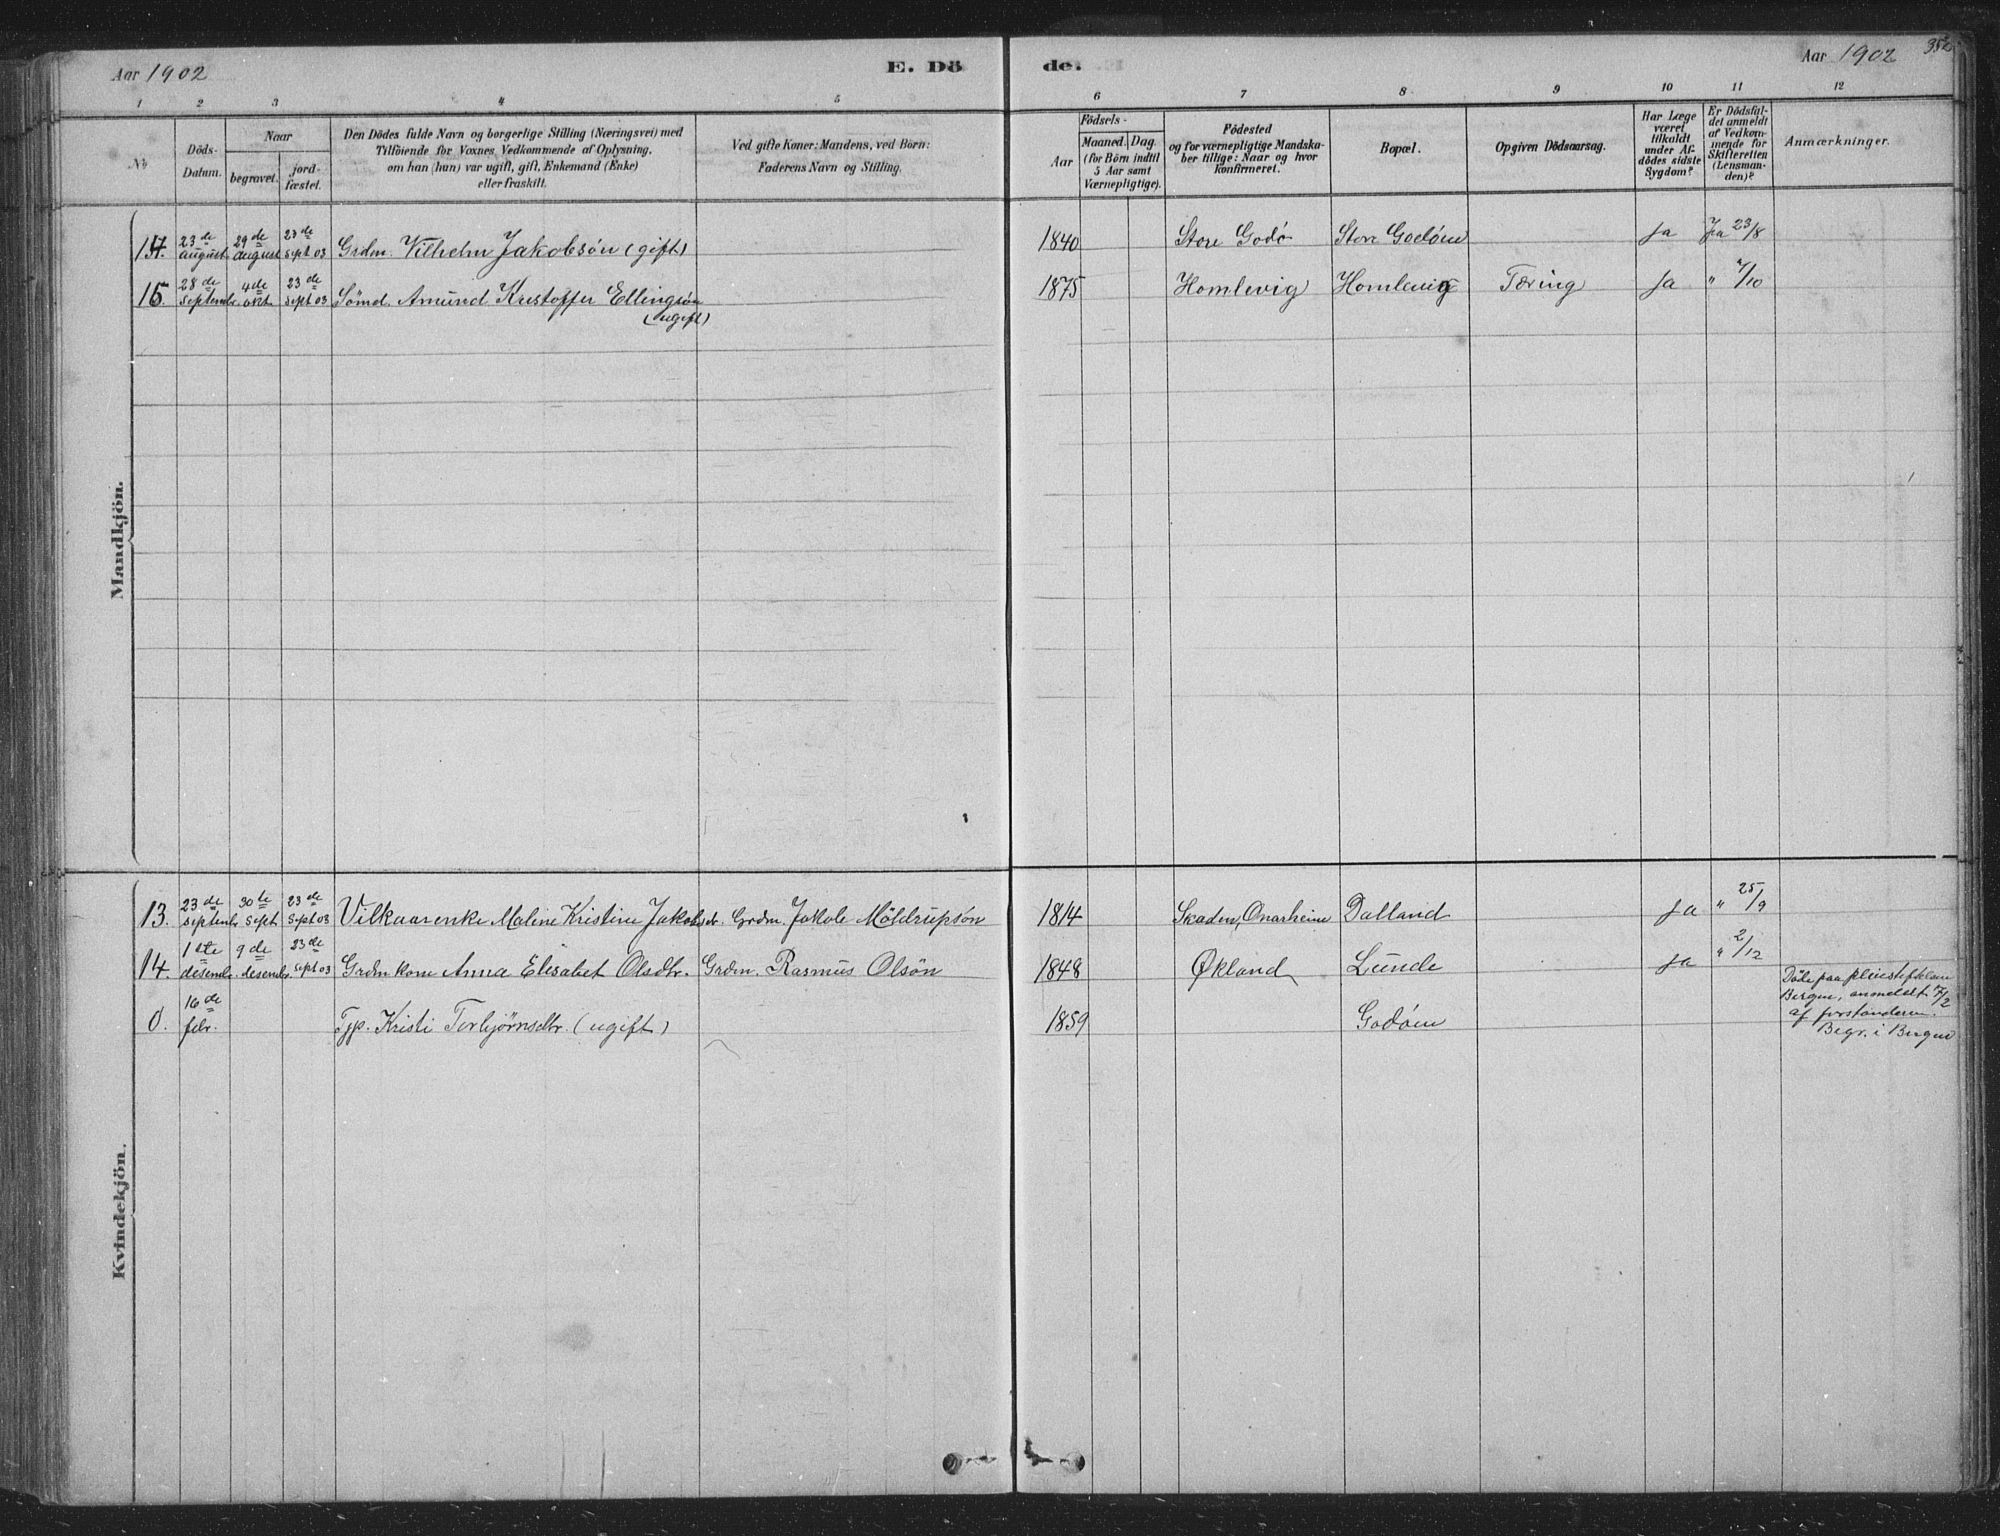 Aar 1902 E. Dö de. Aar 1902 352
1 2 3 4 5 6 7 8 9 10 11 12
No
Döds-
Datum.
Naar
begravet.
jord-
fæstet.
Den Dödes fulde Navn og borgerlige Stilling (Næringsvei) med
Tilföiende for Voxnes Vedkommende af Oplysning,
om han (hun) var ugift, gift, Enkemand (Enke)
eller fraskilt.
Ved gifte Koner: Mandens, ved Börn:
Faderens Navn og Stilling.
Födsels-
Aar
Maaned. Dag.
(for Börn indtil
5 Aar samt
Værnepligtige).
Födested
og for værnepligtige Mandska-
ber tillige: Naar og hvor
konfirmeret.
Bopæl.
Opgiven Dödsaarsag.
Har Læge
været
tilkaldt
under Af-
dödes sidste
Sygdom?
Er Dödsfal-
det anmeldt
af Vedkom-
mende for
Skifteretten
(Lensman-
den)?
Anmærkninger.
Mandkjön.
14. 23de august 29de august 23de sept 03 Grdm. Vilhelm Jakobsön (gift) 1840 Store Godö Store Godöen Ja Ja 23/8
15. 28de septembr. 4de okt 23de sept 03 Sömd. Amund Kristoffer Ellingsön 1875 Homlevig Homlevig Tæring Ja " 4/10
(ugift)
Kvindekjön.
13. 23de septembr 30te sept 23de sept 03 Vilkaarenke Maline Kristine Jakobsdr. Grdm. Jakob Möldrupsön 1814 Skaden, Onarheim Dalland Ja " 25/9
14. 1ste desembr. 9de desembr. 23de sept 03 Grdmkone Anna Elisabet Olsdtr. Grdm. Rasmus Olsön 1848 Økland Lunde Ja " 2/12
0. 16de febr. Tjp. Kristi Torbjørnsdtr. (ugift) 1859 Godöen
Döde paa pleiestiftelsen
Bergen, anmeldt 17/2
af forstanderen.
Begr. i Bergen